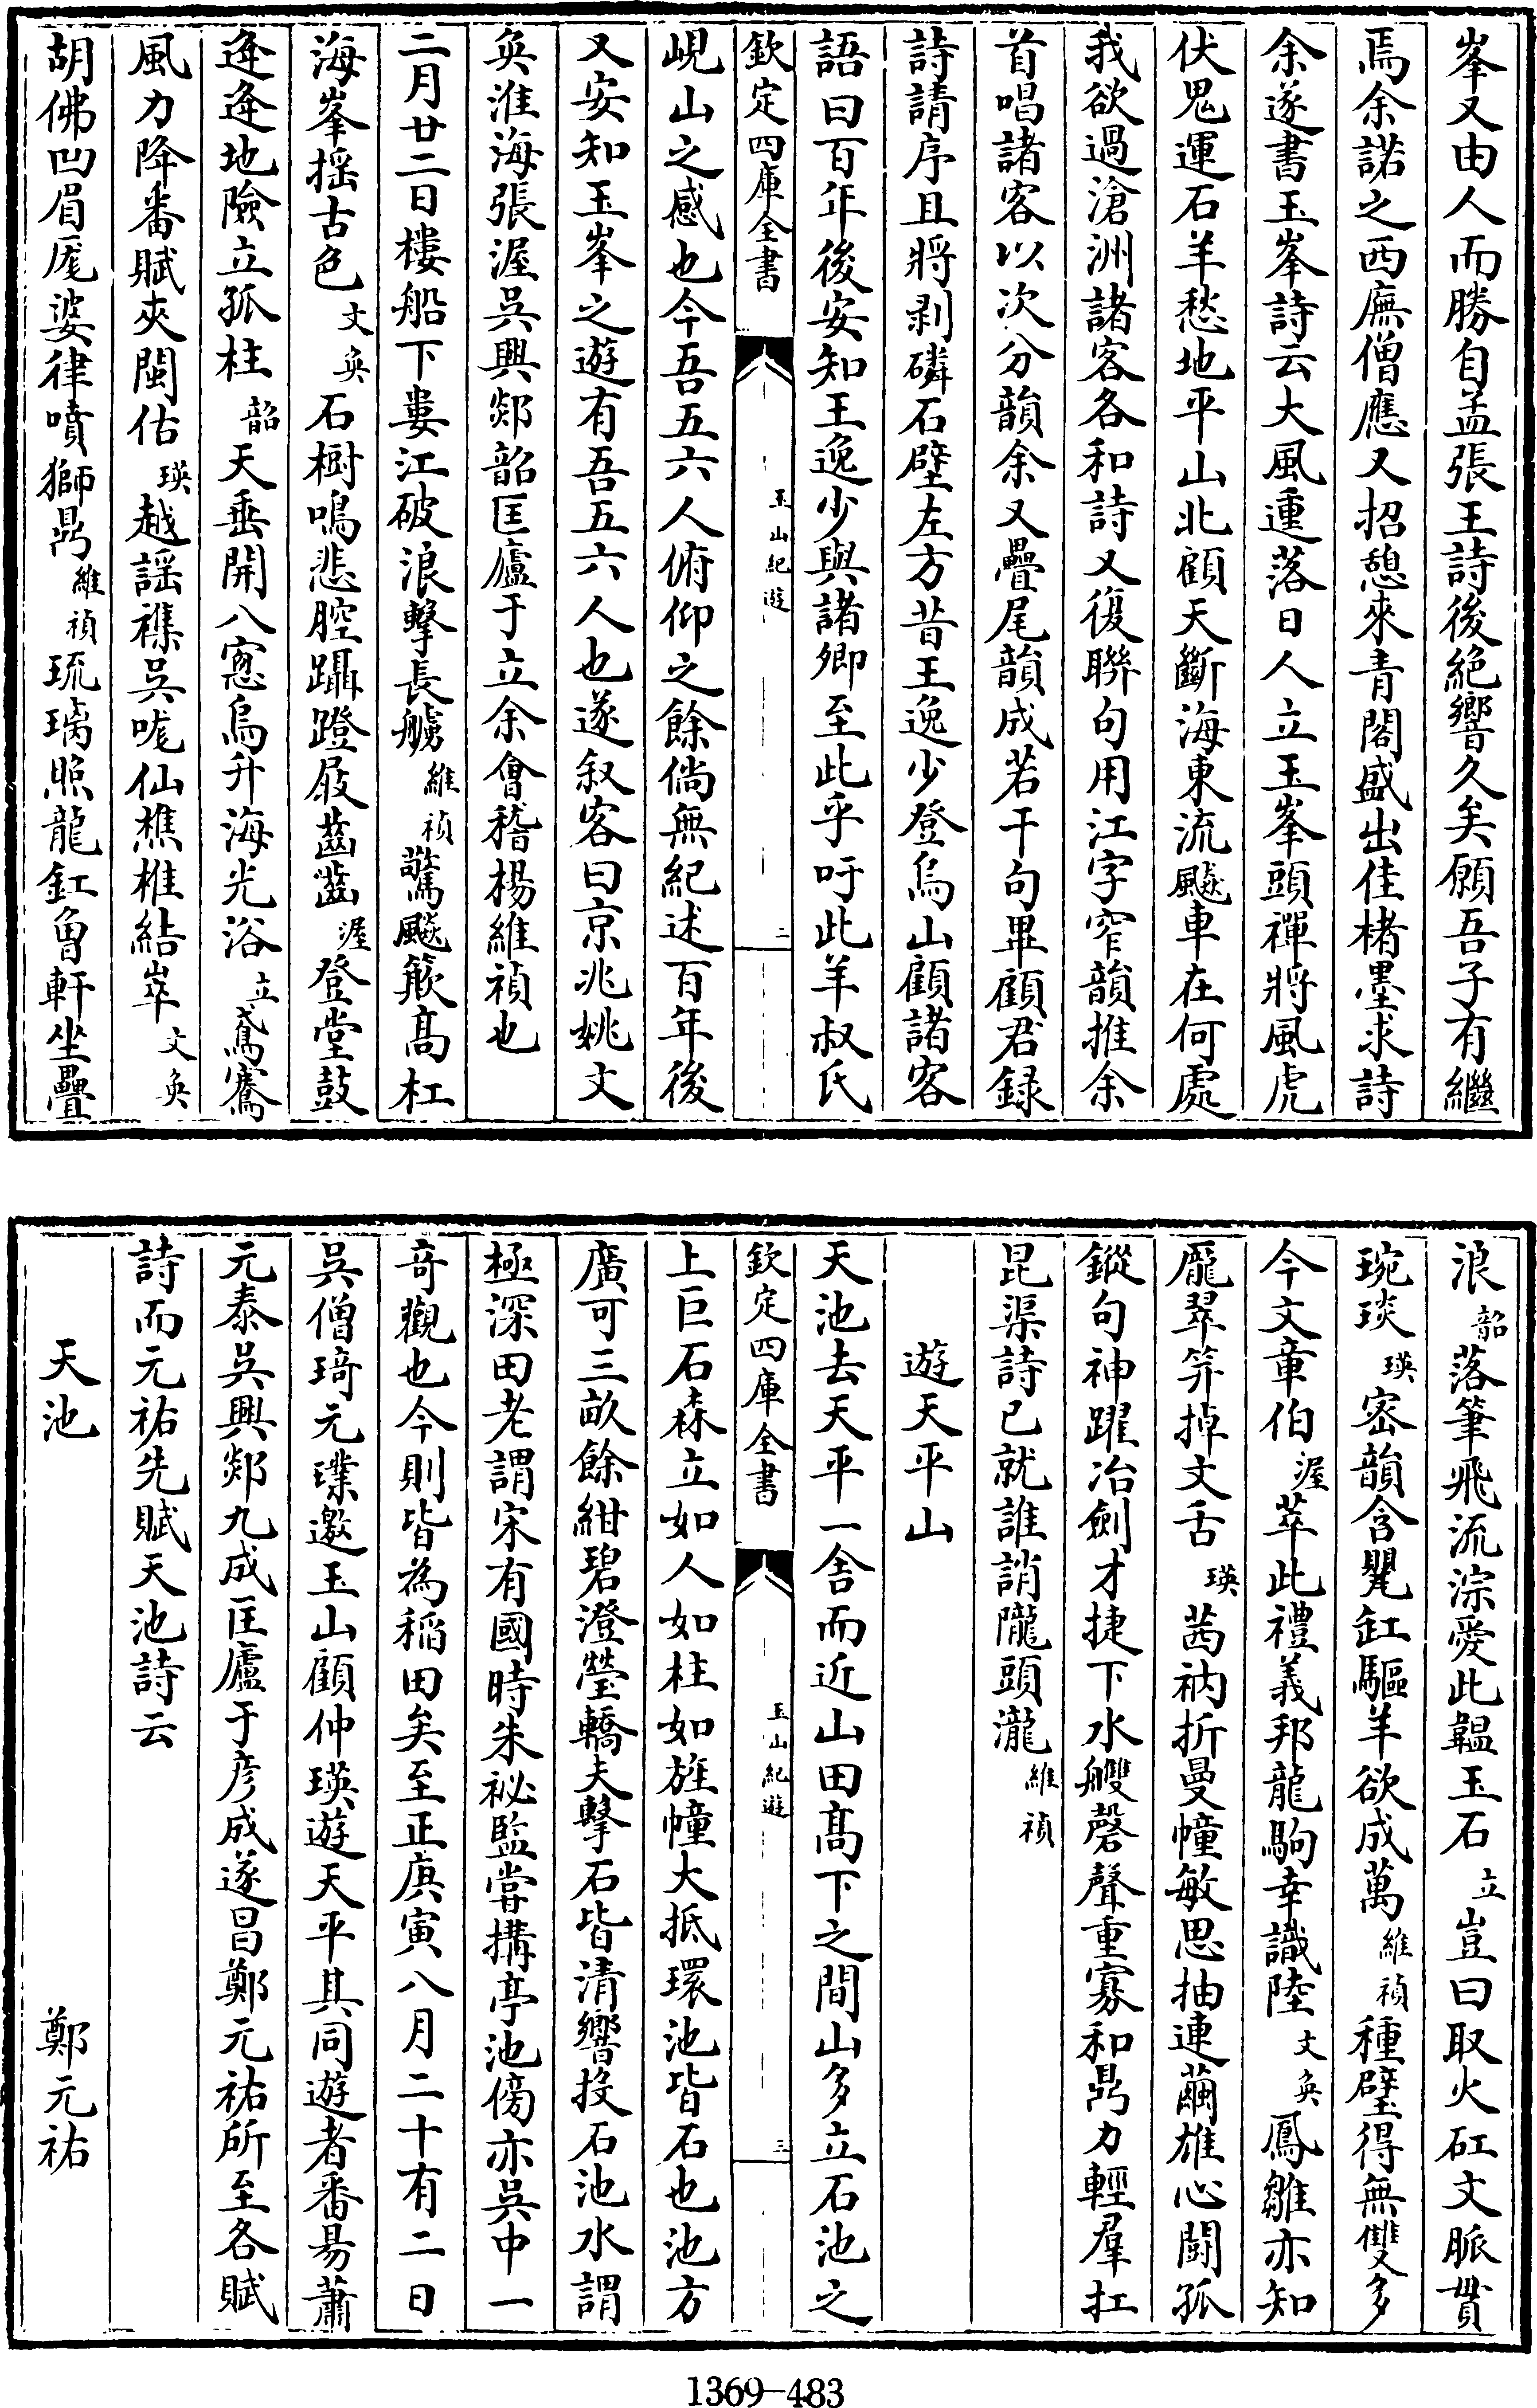 峯又由人而勝自孟張王詩後絕響久矣願吾子有繼
焉余諾之西廡僧應又招憩來青閣盛出佳楮墨求詩
余遂書玉峯詩云大風連落日人立玉峯頭禪將風虎
伏鬼運石羊愁地平山北顧天斷海東流飈車在何處
我欲過滄洲諸客各和詩又復聯句用江字窄韻推余
首唱諸客以次分韻余又疊尾韻成若干句畢顧君錄
詩請序且將剥磷石壁左方昔王逸少登烏山顧諸客
語曰百年後安知王逸少與諸卿至此乎吁此羊叔氏
欽定四庫全書 玉山紀遊 二
峴山之感也今吾五六人俯仰之餘倘無紀述百年後
又安知玉峯之遊有吾五六人也遂叙客曰京兆姚文
奐淮海張渥吳興郯韶匡廬于立余會稽楊維禎也
二月廿二日樓船下婁江破浪擊長艣維禎驚飈簸高杠
海峯揺古色文奐石樹鳴悲腔躡蹬屐齒齾渥登堂鼓
逄逄地險立孤柱韶天垂開八窻烏升海光浴立鳶騫
風力降番賦夾閩估瑛越謡襍吳哤仙樵椎結崒文奐
胡佛凹眉厖婆律噴獅鼎維禎琉璃照龍釭魯軒坐疊
浪韶落筆飛流淙愛此韞玉石立豈曰取火矼文脈貫
琬琰瑛宻韻含甖缸驅羊欲成萬維禎種璧得無雙多
今文章伯渥萃此禮義邦龍駒幸識陸文奐鳳雛亦知
龐翠笄掉文舌瑛茜衲折曼幢敏思抽連繭雄心鬬孤
鏦句神躍冶劍才捷下水艭磬聲重寡和鼎力輕羣扛
昆渠詩已就誰誚隴頭瀧維禎
遊天平山
天池去天平一舍而近山田高下之間山多立石池之
欽定四庫全書 玉山紀遊 三
上巨石森立如人如柱如旌幢大抵環池皆石也池方
廣可三畝餘紺碧澄瑩轎夫擊石皆清響投石池水謂
極深田老謂宋有國時朱祕監嘗搆亭池傍亦吳中一
奇觀也今則皆為稻田矣至正庚寅八月二十有二日
吳僧琦元璞邀玉山顧仲瑛遊天平其同遊者番昜蕭
元泰吳興郯九成匡廬于彥成遂昌鄭元祐所至各賦
詩而元祐先賦天池詩云
天池 鄭元祐
1369-483